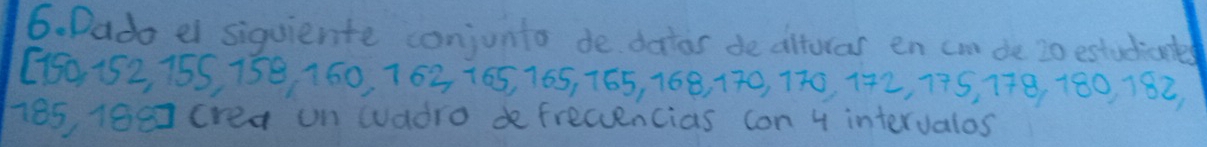 6. Dado el siguiente conjunto de datos de alturas en cm de 20 estudiantes
[150, 152, 155, 158, 160, 162, 165, 165, 165, 168, 170, 170, 172, 175, 178, 180, 182,
185, 188] crea un cuadro de frecuencias con 4 intervalos